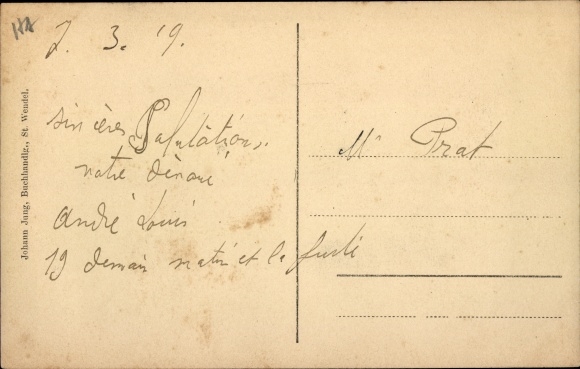 HA
7. 3. 19.
sincères Salutations.
notre dévoué
André Louis
19 demain matin et la
Mr Prat
Johann Jung, Buchhandlg., St. Wendel.